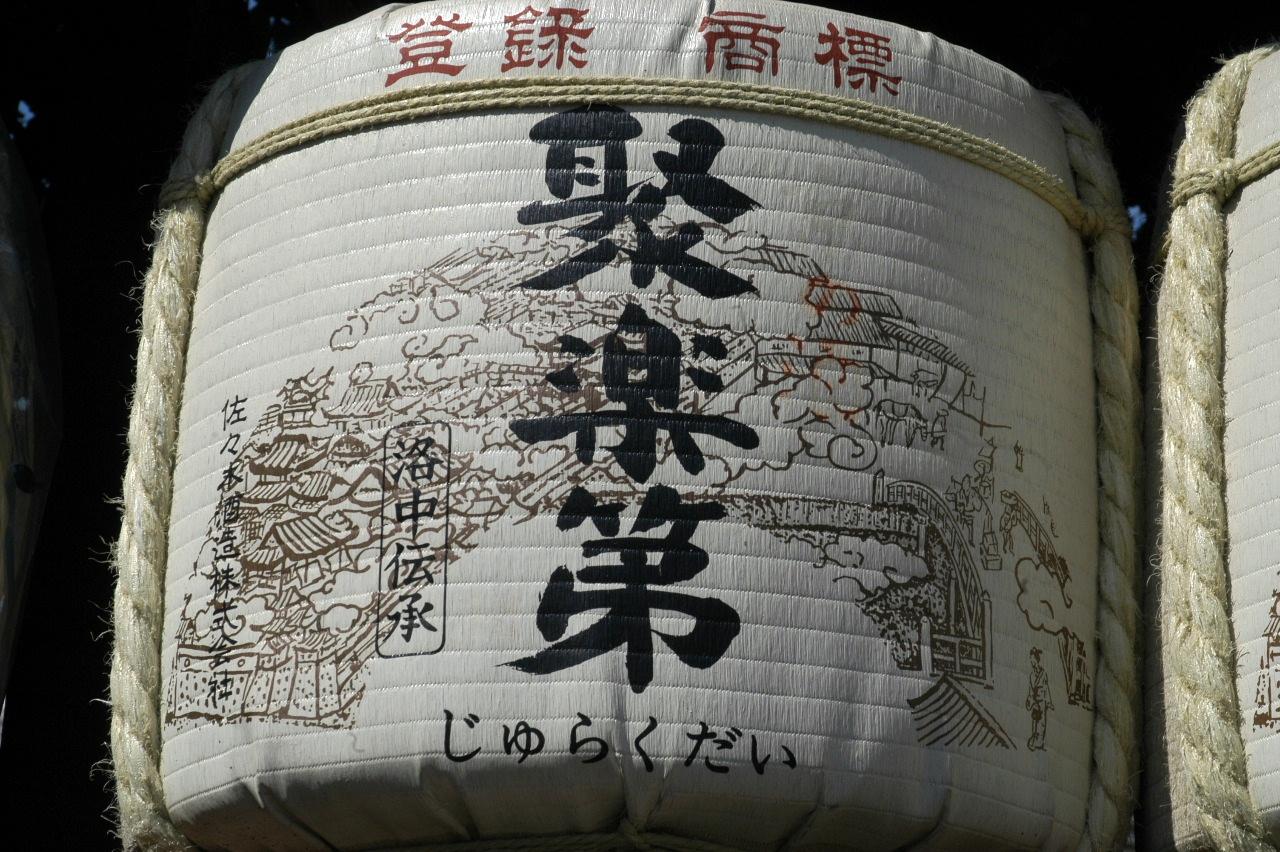 登録商標
聚楽第
洛中伝承
佐々木酒造株式会社
じゅらくだい